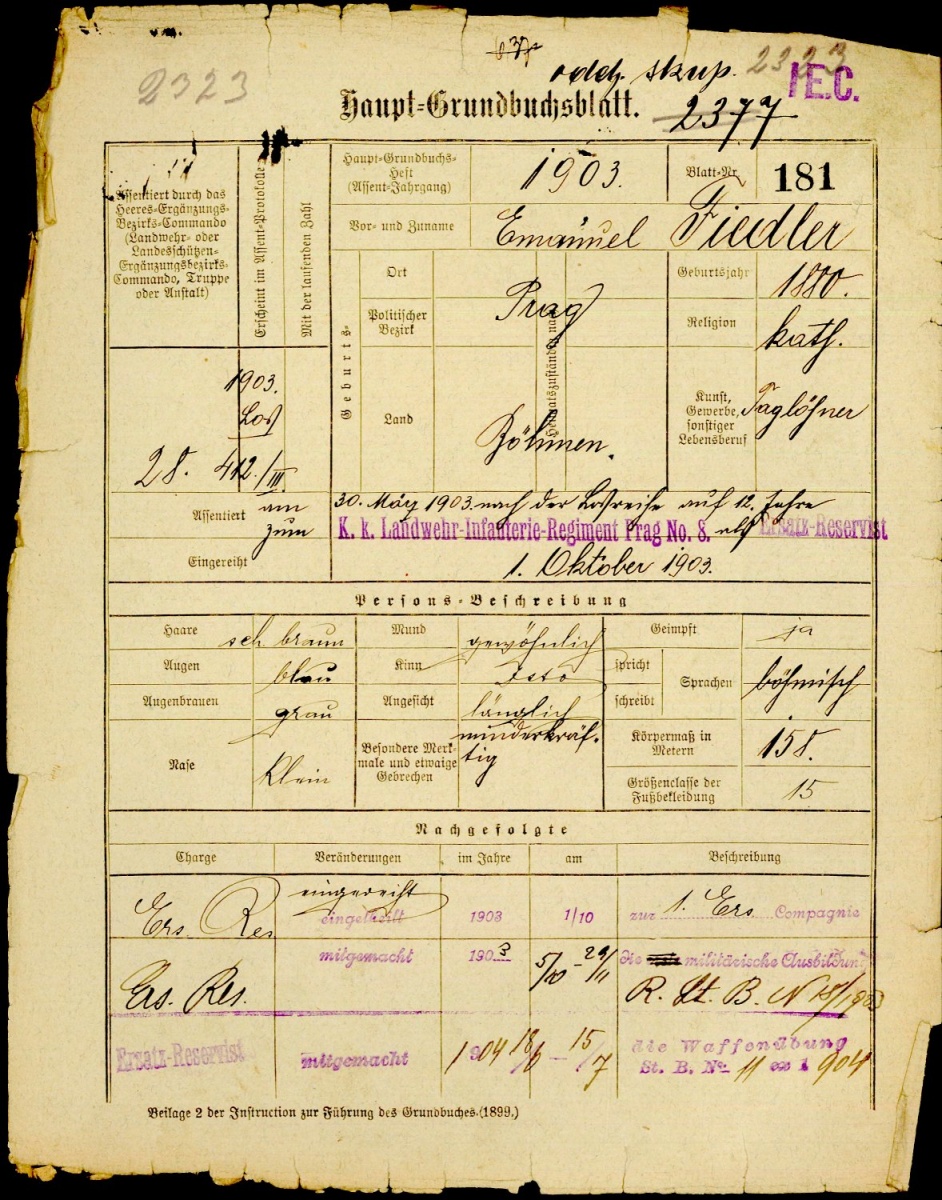 2323
odd. skup.
2323
I E.C.
Haupt=Grundbuchsblatt.
2377
Assentiert durch das
Heeres-Ergänzungs-
Bezirks-Commando
(Landwehr- oder
Landesschützen-
Ergänzungsbezirks-
Commando, Truppe
oder Anstalt)
Erscheint im Assent-Protokolle
Mit der laufenden Zahl
Haupt-Grundbuchs-
Heft
(Assent-Jahrgang)
1903.
Blatt-Nr.
181
Vor- und Zuname
Emanuel Fiedler
Geburts-
Ort
Politischer
Bezirk
Prag
Land
Böhmen.
Heimatszuständig nach
Geburtsjahr
1880.
Religion
kath.
Kunst,
Gewerbe,
sonstiger
Lebensberuf
Taglöhner
1903.
Los
28. 412./III.
Assentiert
am
30. März 1903. nach der Losreihe auf 12. Jahre
zum
K. k. Landwehr-Infanterie-Regiment Prag No. 8. als Ersatz-Reservist
Eingereiht
1. Oktober 1903.
Persons=Beschreibung
Haare
sch. braun
Mund
gewöhnlich
Geimpft
ja
Augen
blau
Kinn
spricht
schreibt
Sprachen
böhmisch
Augenbrauen
grau
Angesicht
länglich
Nase
klein
Besondere Merk-
male und etwaige
Gebrechen
minderkräf-
tig
Körpermaß in
Metern
158.
Größenclasse der
Fußbekleidung
15
Nachgefolgte
Charge
Veränderungen
im Jahre
am
Beschreibung
Ers. Res
eingereiht
eingetheilt
1903
1/10
zur 1. Ers. Compagnie
Ers. Res.
mitgemacht
1903
5/10 - 29/11
die militärische Ausbildung
Ersatz-Reservist
mitgemacht
1904
18/6 - 15/7
die Waffenübung
St. B. No. 11 ex 1904
Beilage 2 der Instruction zur Führung des Grundbuches. (1899.)